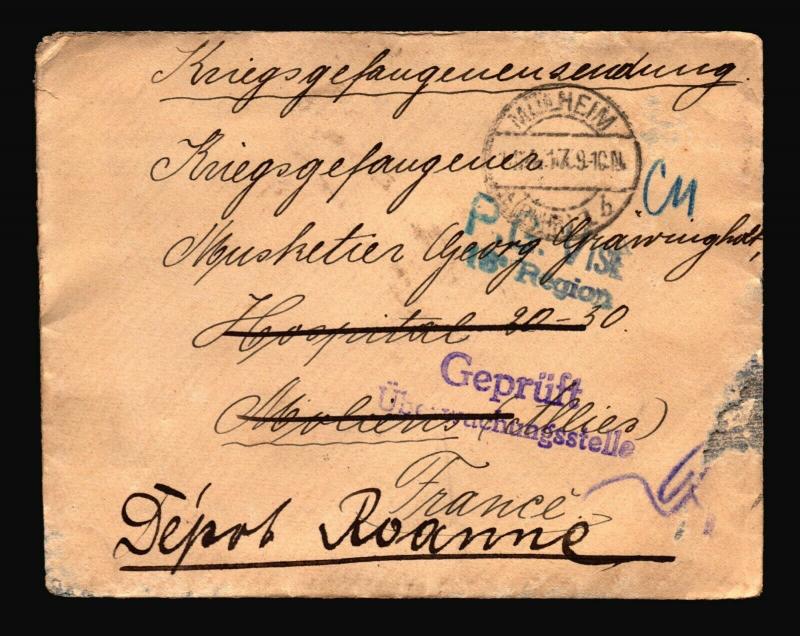 Kriegsgefangenensendung.
MÜLHEIM
17.9-10N.
b
Kriegsgefangener
CM
P.G.
Musketier Georg Gräwingholt,
18e Region
Hospital 20-30.
Geprüft
Überwachungsstelle
Moliens (Allier)
France.
Dépot Roanne